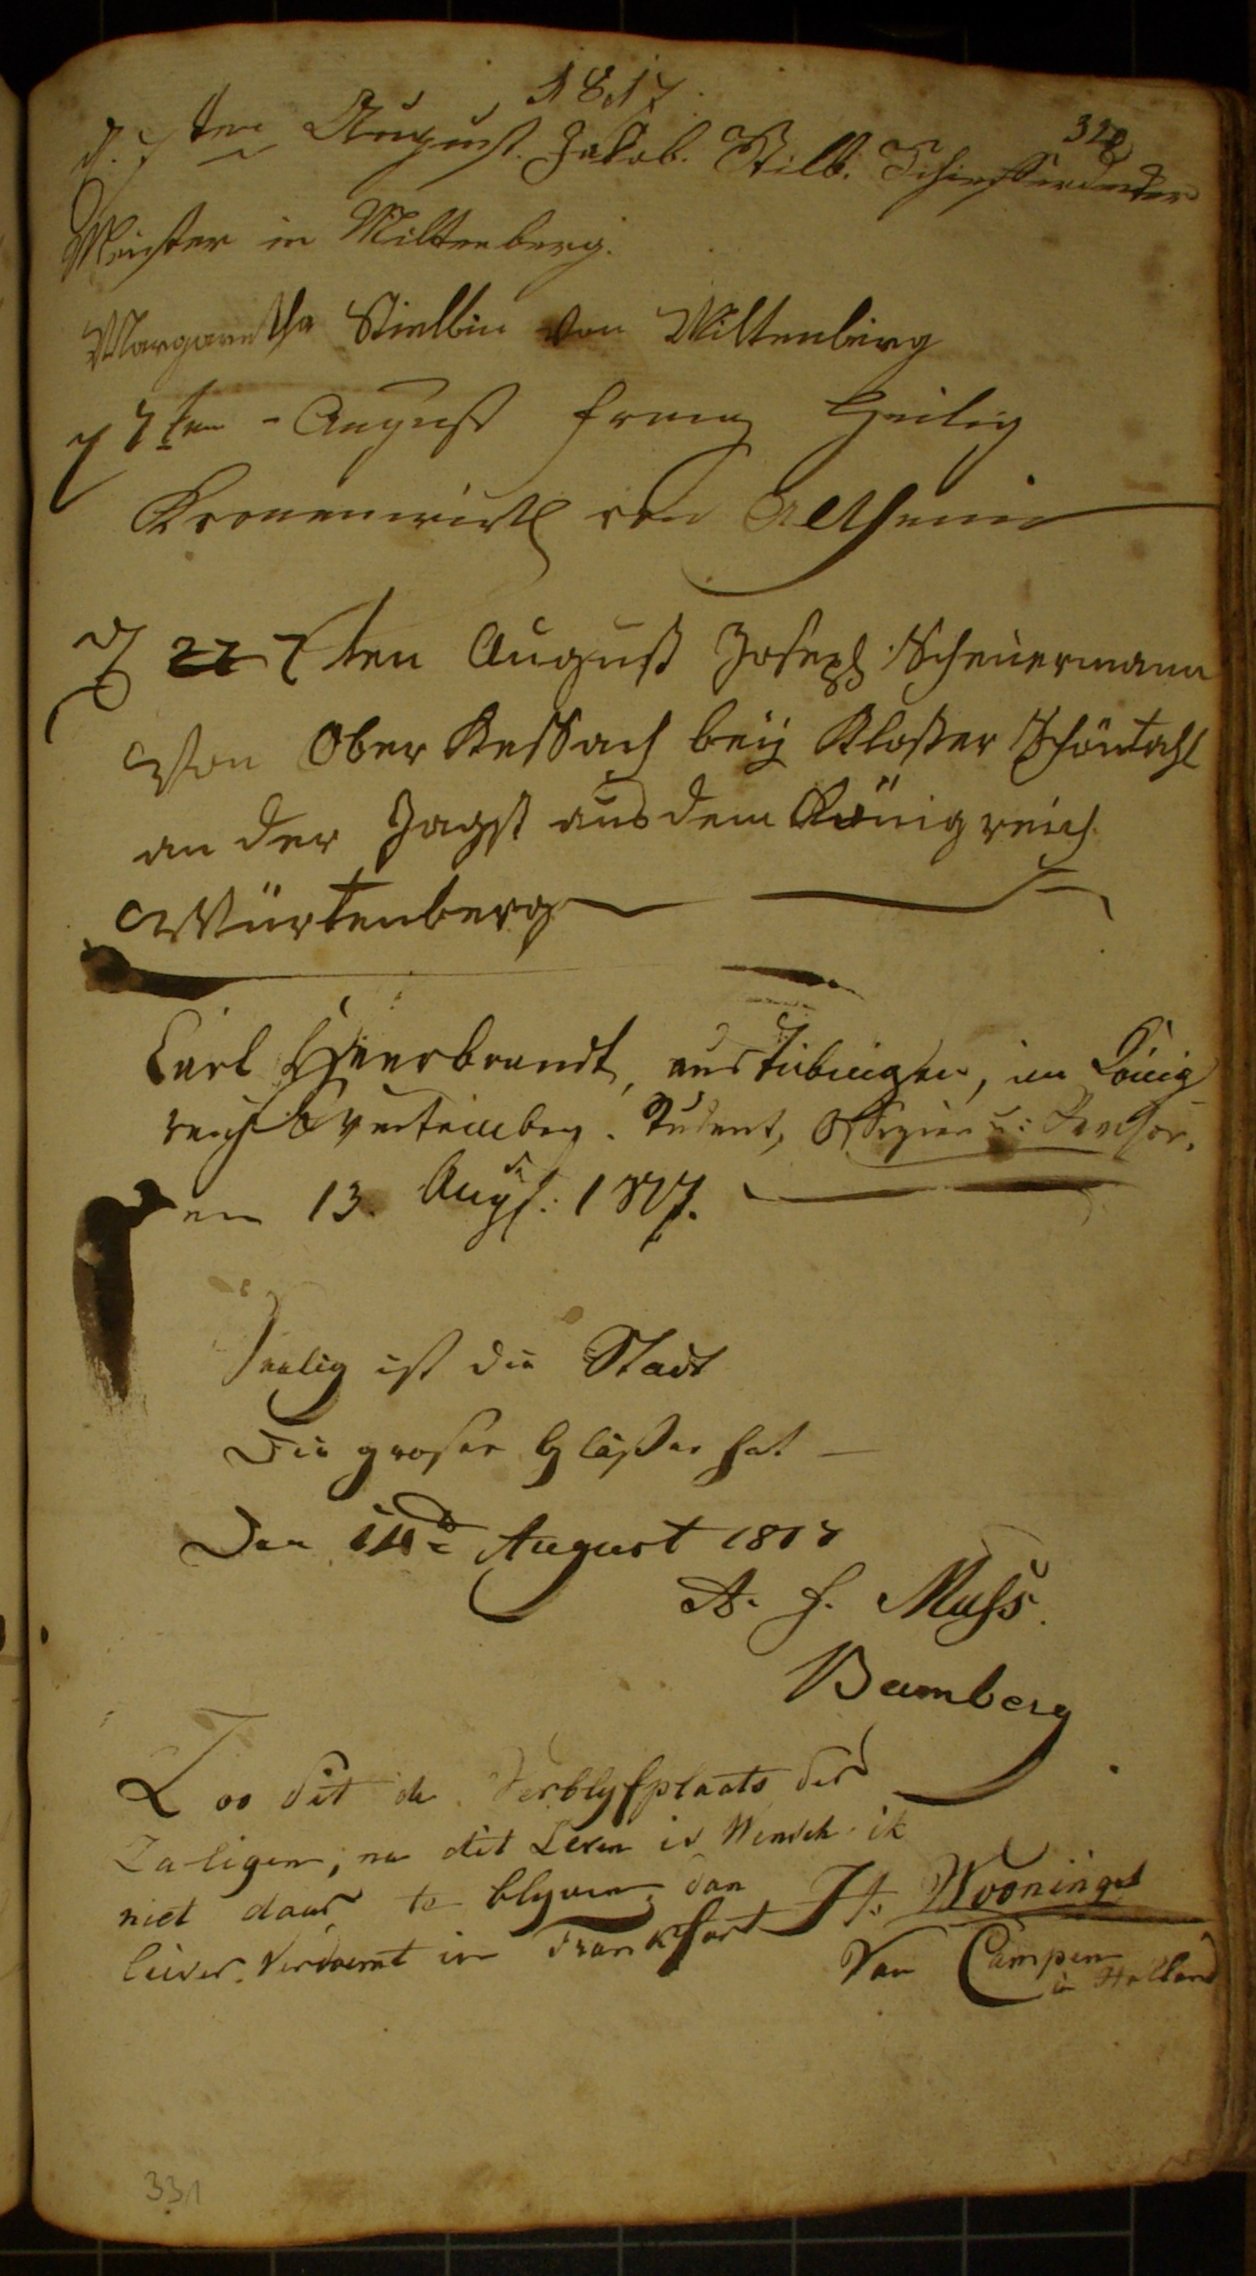 1817
320
d. 7ten August. Jakob. Stilb.
Meister in Miltenberg.
Margaretha Stielbin von Miltenberg
d 7ten August Franz Heilig
Kronenwirth von Altheim
D 7ten August Joseph Scheuermann
Von Ober Kessach beÿ Kloster Schöntahl
an der Jagst aus dem Königreich
Würtenberg
Carl Heerbrandt, aus Tübingen, im König
reich Würtemberg. Student, Offizier u:
am 13. Augst. 1817.
Seelig ist die Stadt
Die grosse Gläßer hat –
Den 14n August 1817
A. H. Muss.
Bamberg
Zoo dit de Verblyfplaats der
Zaligen, na dit Leven is Wensch ik
niet daar te blyven, dan
liever Verdoemt in Frankfort
H. Wooninger
Van Campen
in Holland
331